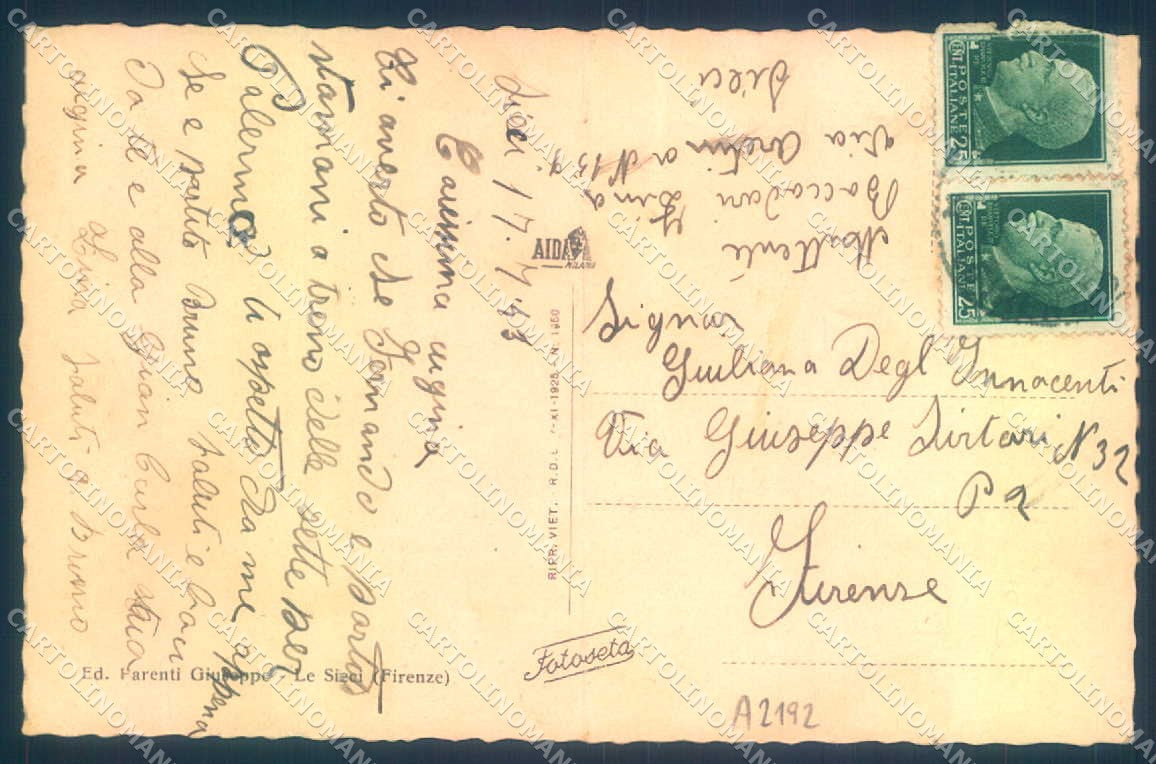 Sieci 17.7.43
Carissima cugina
Ti averto che Fernando e partito
stamani a treno delle sette per
Palermo ti aspetto da me appena
Se e partito Bruno saluti e baci
da te e alla Gian Carla tua
cugina Lina saluti a Bruno
Mittente
Baccadari Lina
Via Aretina N 139
Sieci
POSTE
ITALIANE
CENT 25
POSTE
ITALIANE
CENT 25
Signora
Giuliana Degl Innocenti
Via Giuseppe Sirtori N 32
P 2
Firenze
AIDA
MILANO
RIPR. VIET. R.D.L. -XI-1925 - N. 1950
Fotoseta
Ed. Parenti Giuseppe - Le Sieci (Firenze)
A2192
CARTOLINOMANIA